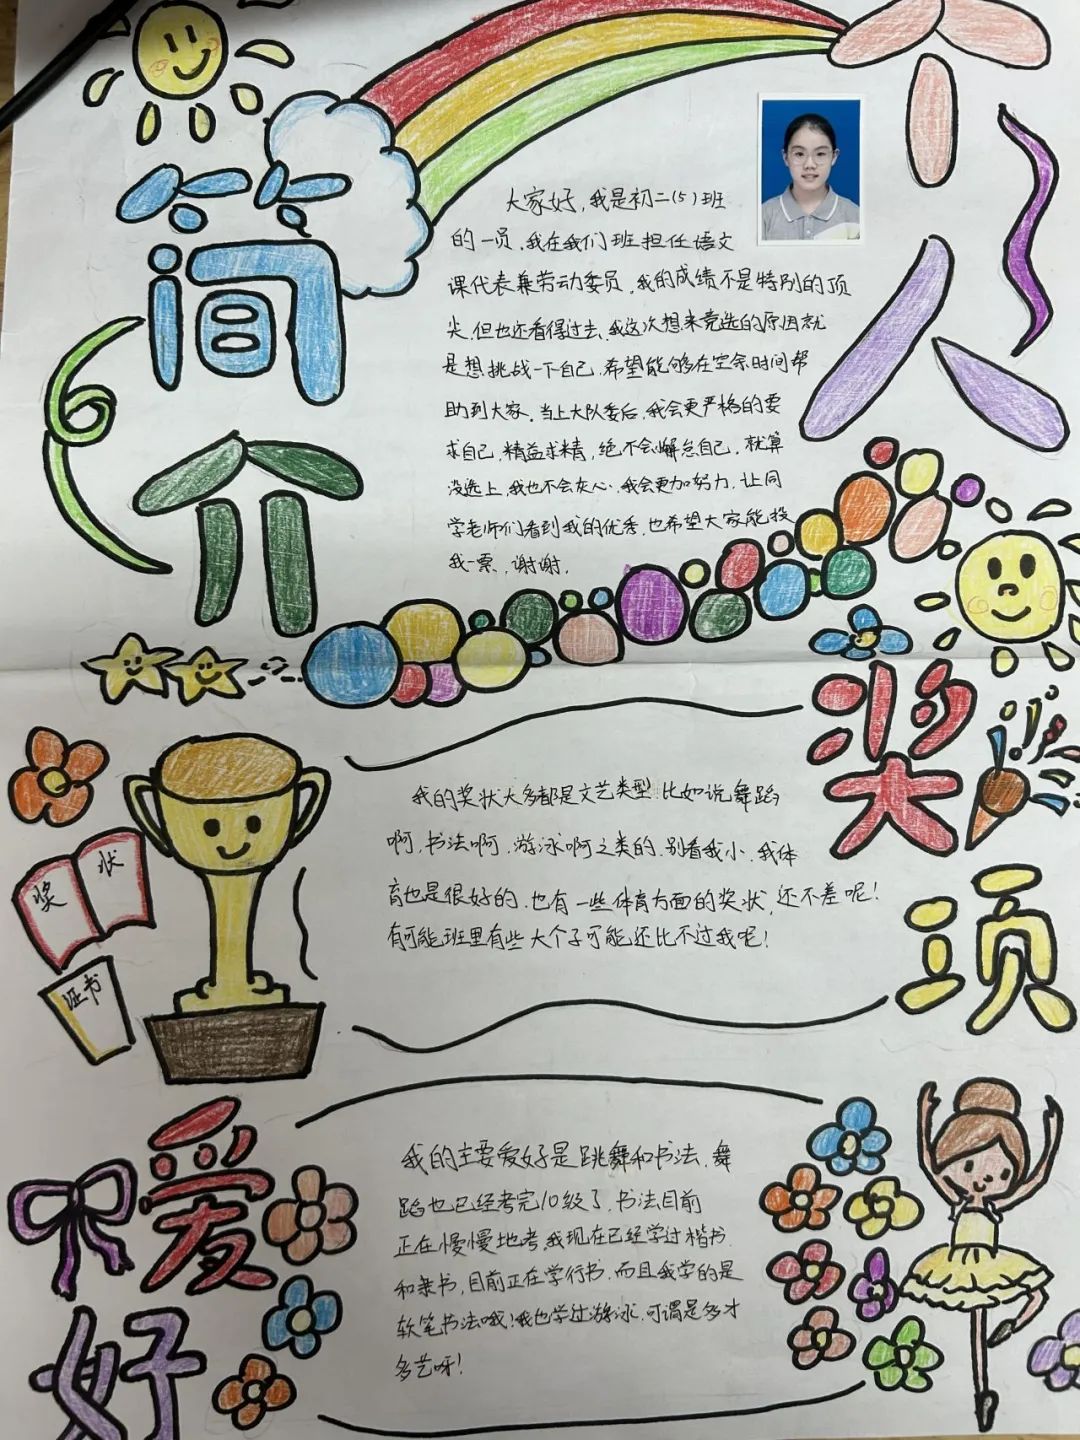 个人
简介
大家好，我是初二(5)班
的一员，我在我们班担任语文
课代表兼劳动委员，我的成绩不是特别的顶
尖，但也还看得过去，我这次想来竞选的原因就
是想挑战一下自己，希望能够在空余时间帮
助到大家。当上大队委后，我会更严格的要
求自己，精益求精，绝不会懈怠自己，就算
没选上，我也不会灰心，我会更加努力，让同
学老师们看到我的优秀，也希望大家能投
我一票，谢谢。
奖项
奖状
证书
我的奖状大多都是文艺类型，比如说舞蹈
啊，书法啊，游泳啊之类的，别看我小，我体
育也是很好的，也有一些体育方面的奖状，还不差呢！
有可能班里有些大个子可能还比不过我呢！
爱好
我的主要爱好是跳舞和书法，舞
蹈也已经考完10级了，书法目前
正在慢慢地考，我现在已经学过楷书
和隶书，目前正在学行书，而且我学的是
软笔书法哦！我也学过游泳，可谓是多才
多艺呀！